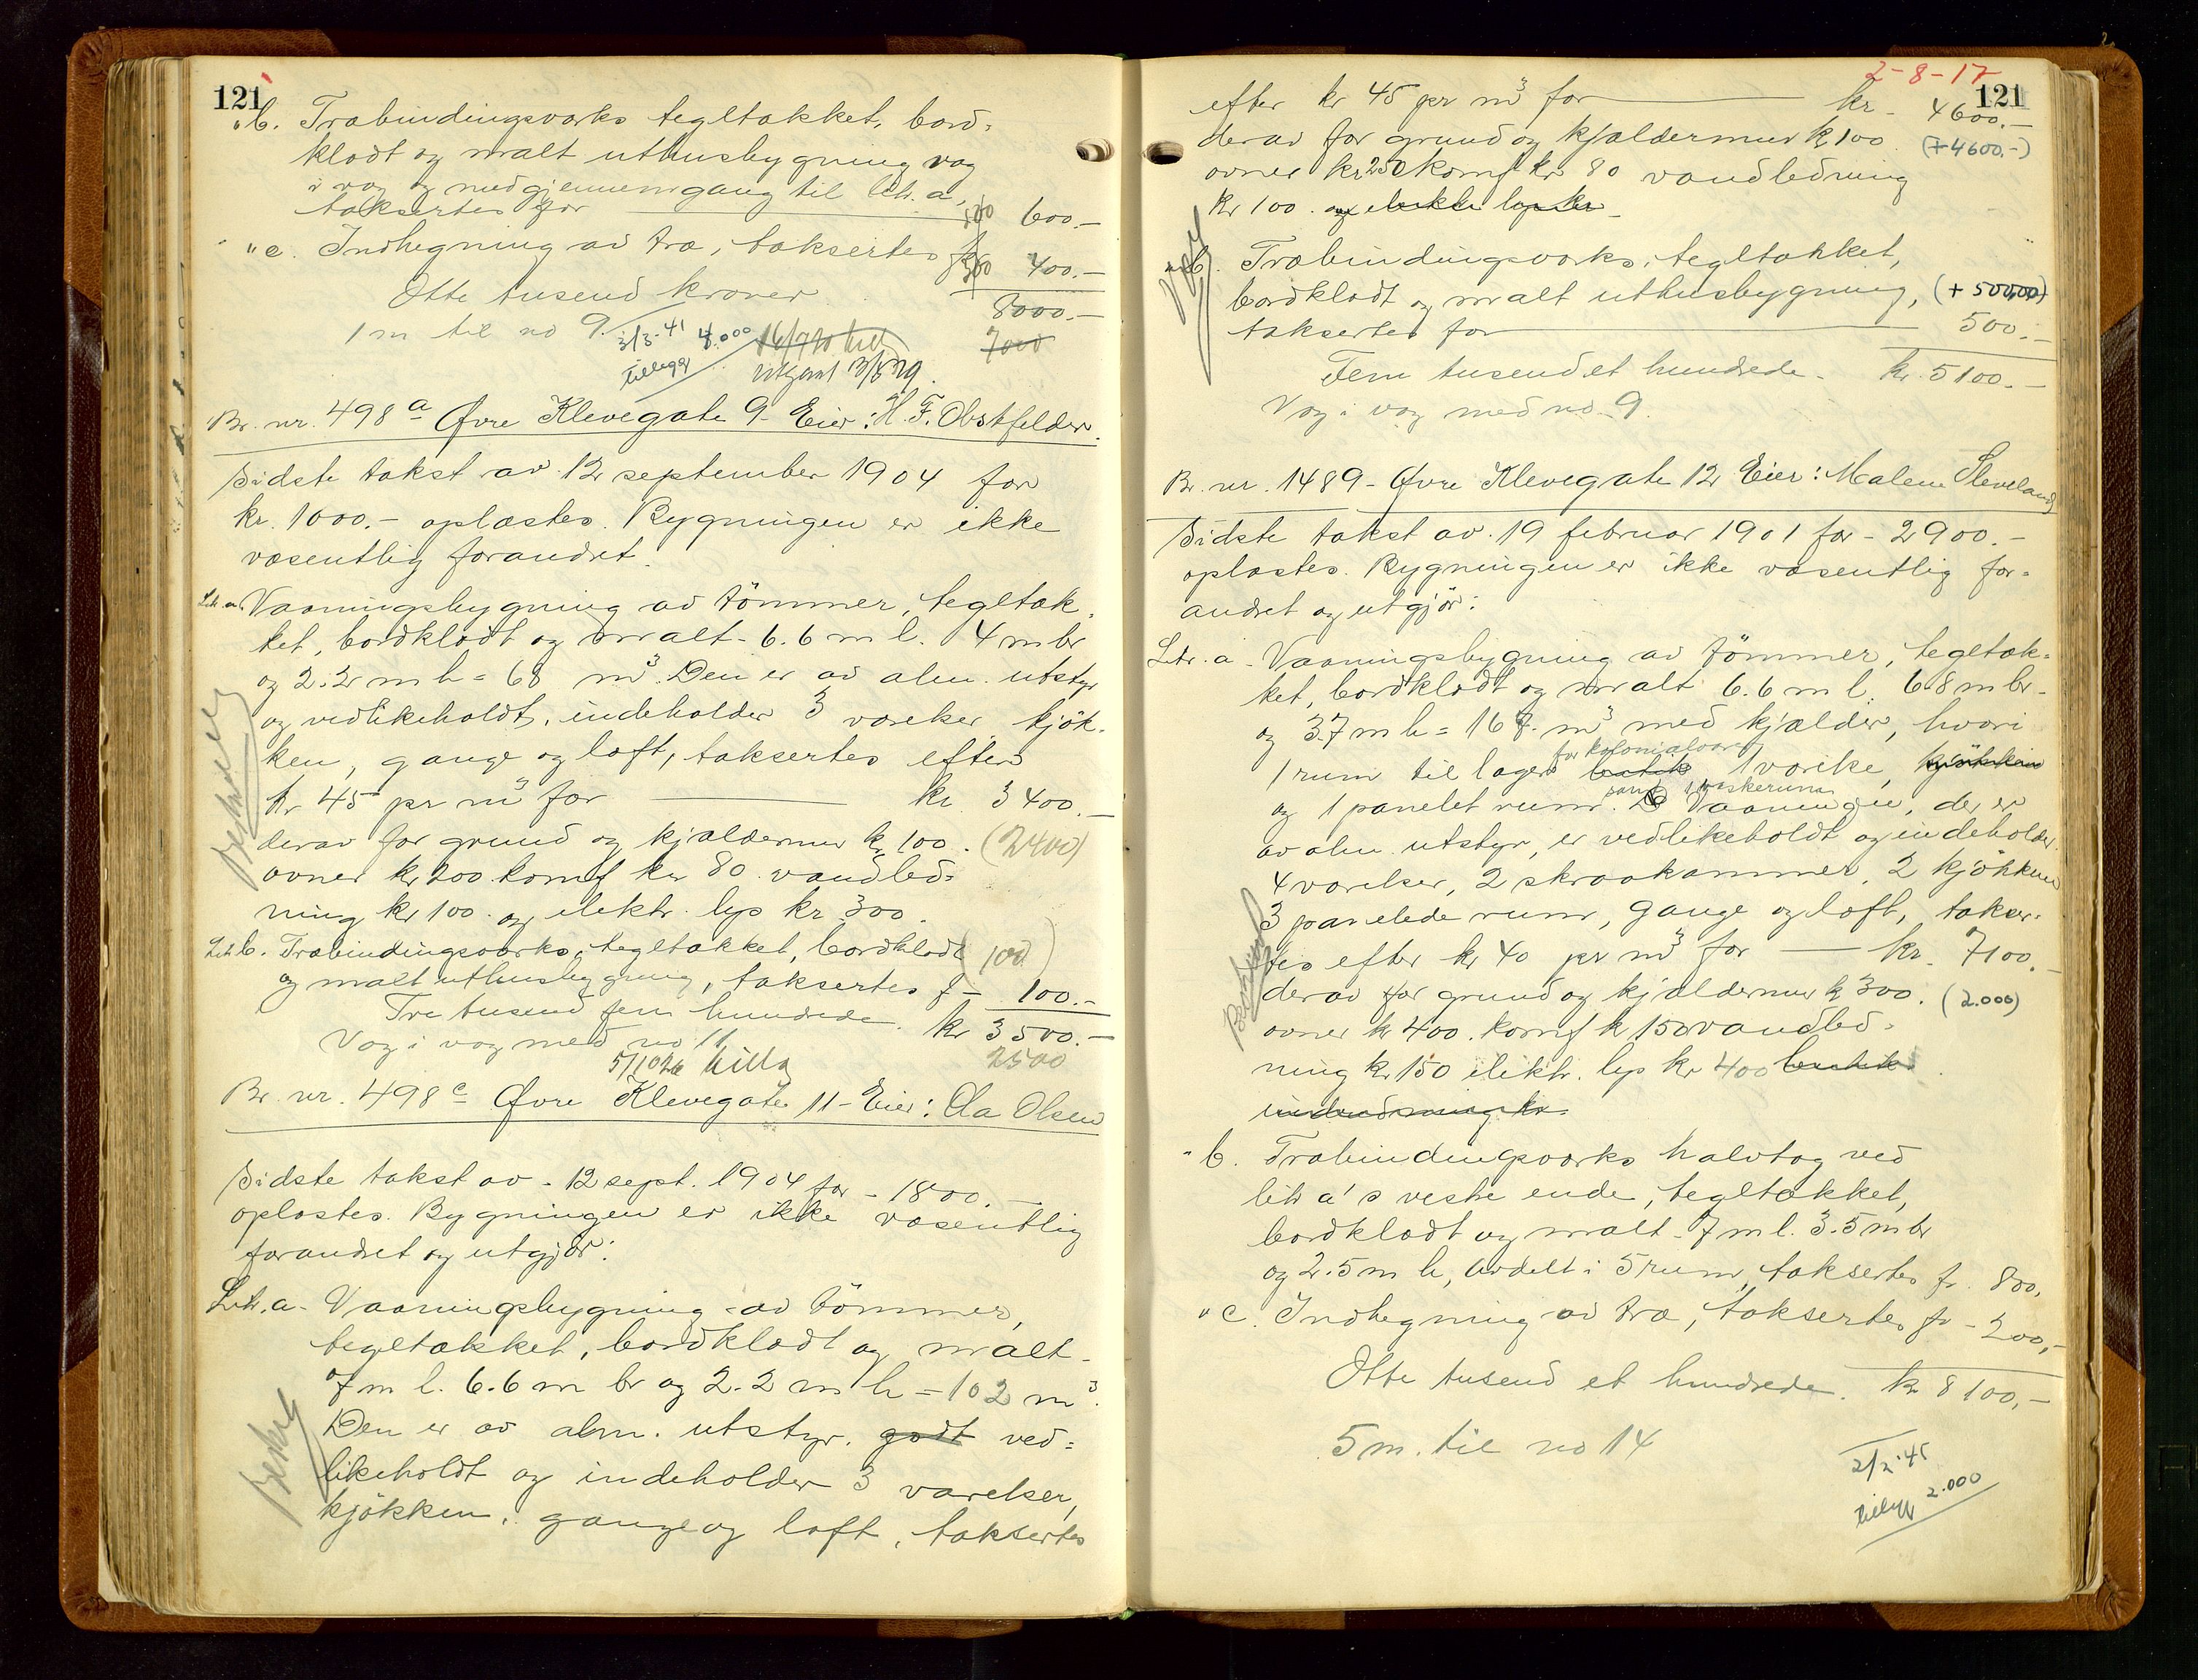 121
" b. Træbindingsverks tegltækket, bord-
klædt og malt uthusbygning væg
i væg og med gjennemgang til litr. a,
takseres for 600.-
" c. Indhegning av træ, takseres fr 400.-
Otte tusend kroner 8000.-
1 m til no 9. 3/3-41 4.000 7000
tillegg utgaat
Br. nr. 498 a Øvre Klevegate 9 - Eier: H. F. Obstfelder.
Sidste takst av 12 september 1904 for
kr. 1000.- oplæstes. Bygningen er ikke
væsentlig forandret.
Litr. a. Vaaningsbygning av tömmer, tegltæk-
ket, bordklædt og malt - 6.6 m l. 4 m br
og 2.2 m h = 68 m³. Den er av alm. utstyr
og vedlikeholdt, indeholder 3 værelser, kjök-
ken, gange og loft, takseres efter
kr 45 pr m³ for kr 3400.-
derav for grund og kjældermur kr 100. (2400)
ovner kr 200 komf kr 80 vandled-
ning kr 100. og elektr. lys kr 300.
Litr b. Træbindingsverks, tegltækket, bordklædt (100)
og malt uthusbygning, takseres f - 100.-
Tre tusend fem hundrede. kr 3500.-
Væg i væg med no 11 2500
5/10 26
Br. nr. 498 c Øvre Klevegate 11 - Eier: Ola Olsen
Sidste takst av - 12 sept. 1904 for - 1800.-
oplæstes. Bygningen er ikke væsentlig
forandret og utgjør:
Litr. a - Vaaningsbygning av tömmer,
tegltækket, bordklædt og malt -
7 m l. 6.6 m br og 2.2 m h = 102 m³.
Den er av alm. utstyr. godt ved-
likeholdt og indeholder 3 værelser,
kjökken, gange og loft, takseres
2-8-17
121
efter kr 45 pr m³ for kr - 4600.-
derav for grund og kjældermur kr 100. (+4600.-)
ovner kr 250 komf kr 80 vandledning
kr 100. og elektr lys kr
" b. Træbindingsverks, tegltækket,
bordklædt og malt uthusbygning, (+ 500,00)
takseres for 500.-
Fem tusend et hundrede - kr. 5100.-
Væg i væg med no 9.
Br. nr. 1489 - Øvre Klevegate 12 Eier: Malene Sleveland
Sidste takst av 19 februar 1901 for - 2900.-
oplæstes. Bygningen er ikke væsentlig for-
andret og utgjør:
Litr. a - Vaaningsbygning av tömmer, tegltæk-
ket, bordklædt og malt 6.6 m l. 6.8 m br -
og 3.7 m h = 167 m³ med kjælder, hvori
for kolonialvarer
1 rum til lager butik 1 værelse, kjökken
samt 1 vaskerum
og 1 panelet rum. Vaaningen, der er
av alm utstyr, er vedlikeholdt og indeholder
4 værelser, 2 skraakammer, 2 kjökken
3 panelede rum, gange og loft, takser-
es efter kr 40 pr m³ for kr. 7100.-
derav for grund og kjældermur kr 300. (2.000)
ovner kr 400. komf kr 150 vandled-
ning kr 150 elektr. lys kr 400 butik
indredning kr
" b. Træbindingsverks halvtag ved
litr a's vestre ende, tegltækket,
bordklædt og malt - 7 m l. 3.5 m br
og 2.5 m h, avdelt i 5 rum, takseres fr. 800,
" c. Indhegning av træ, takseres fr - 200,-
Otte tusend et hundrede. kr 8100,-
5 m. til no 14
2/2-45
tillegg 2.000